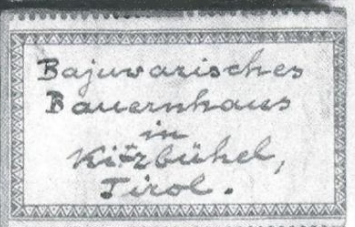 Bajuvarisches
Bauernhaus
in
Kitzbühel,
Tirol.